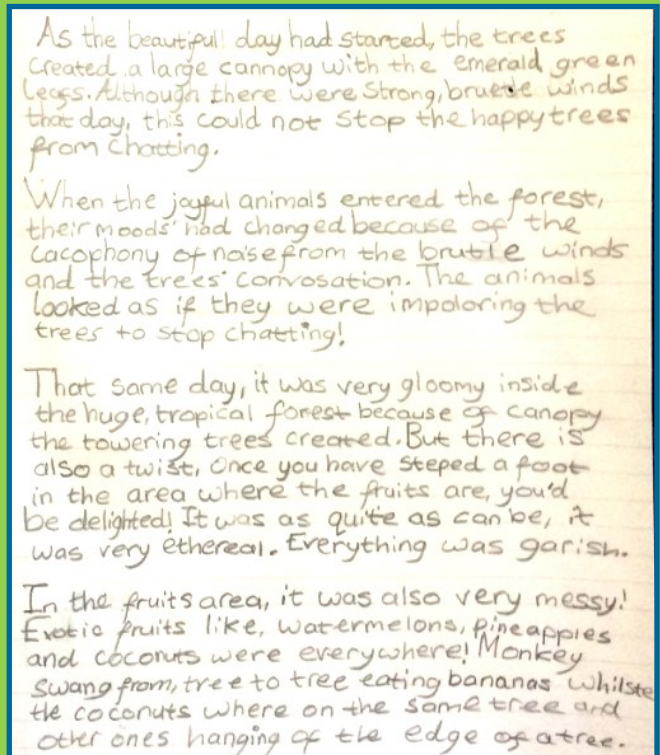 As the beautifull day had started, the trees
created a large cannopy with the emerald green
Leafs. Although there were strong, bruette winds
that day, this could not stop the happy trees
from chatting.
When the joyful animals entered the forest,
their moods had changed because of the
cacophony of noise from the brutle winds
and the trees' convosation. The animals
looked as if they were impoloring the
trees to stop chatting!
That same day, it was very gloomy inside
the huge, tropical forest because of canopy
the towering trees created. But there is
also a twist, Once you have steped a foot
in the area where the fruits are, you'd
be delighted! It was as quite as can be, it
was very ethereal. Everything was garish.
In the fruits area, it was also very messy!
Exotic fruits like, watermelons, pineapples
and coconuts were everywhere! Monkey
swang from, tree to tree eating bananas whilste
the coconuts where on the same tree and
other ones hanging of the edge of a tree.